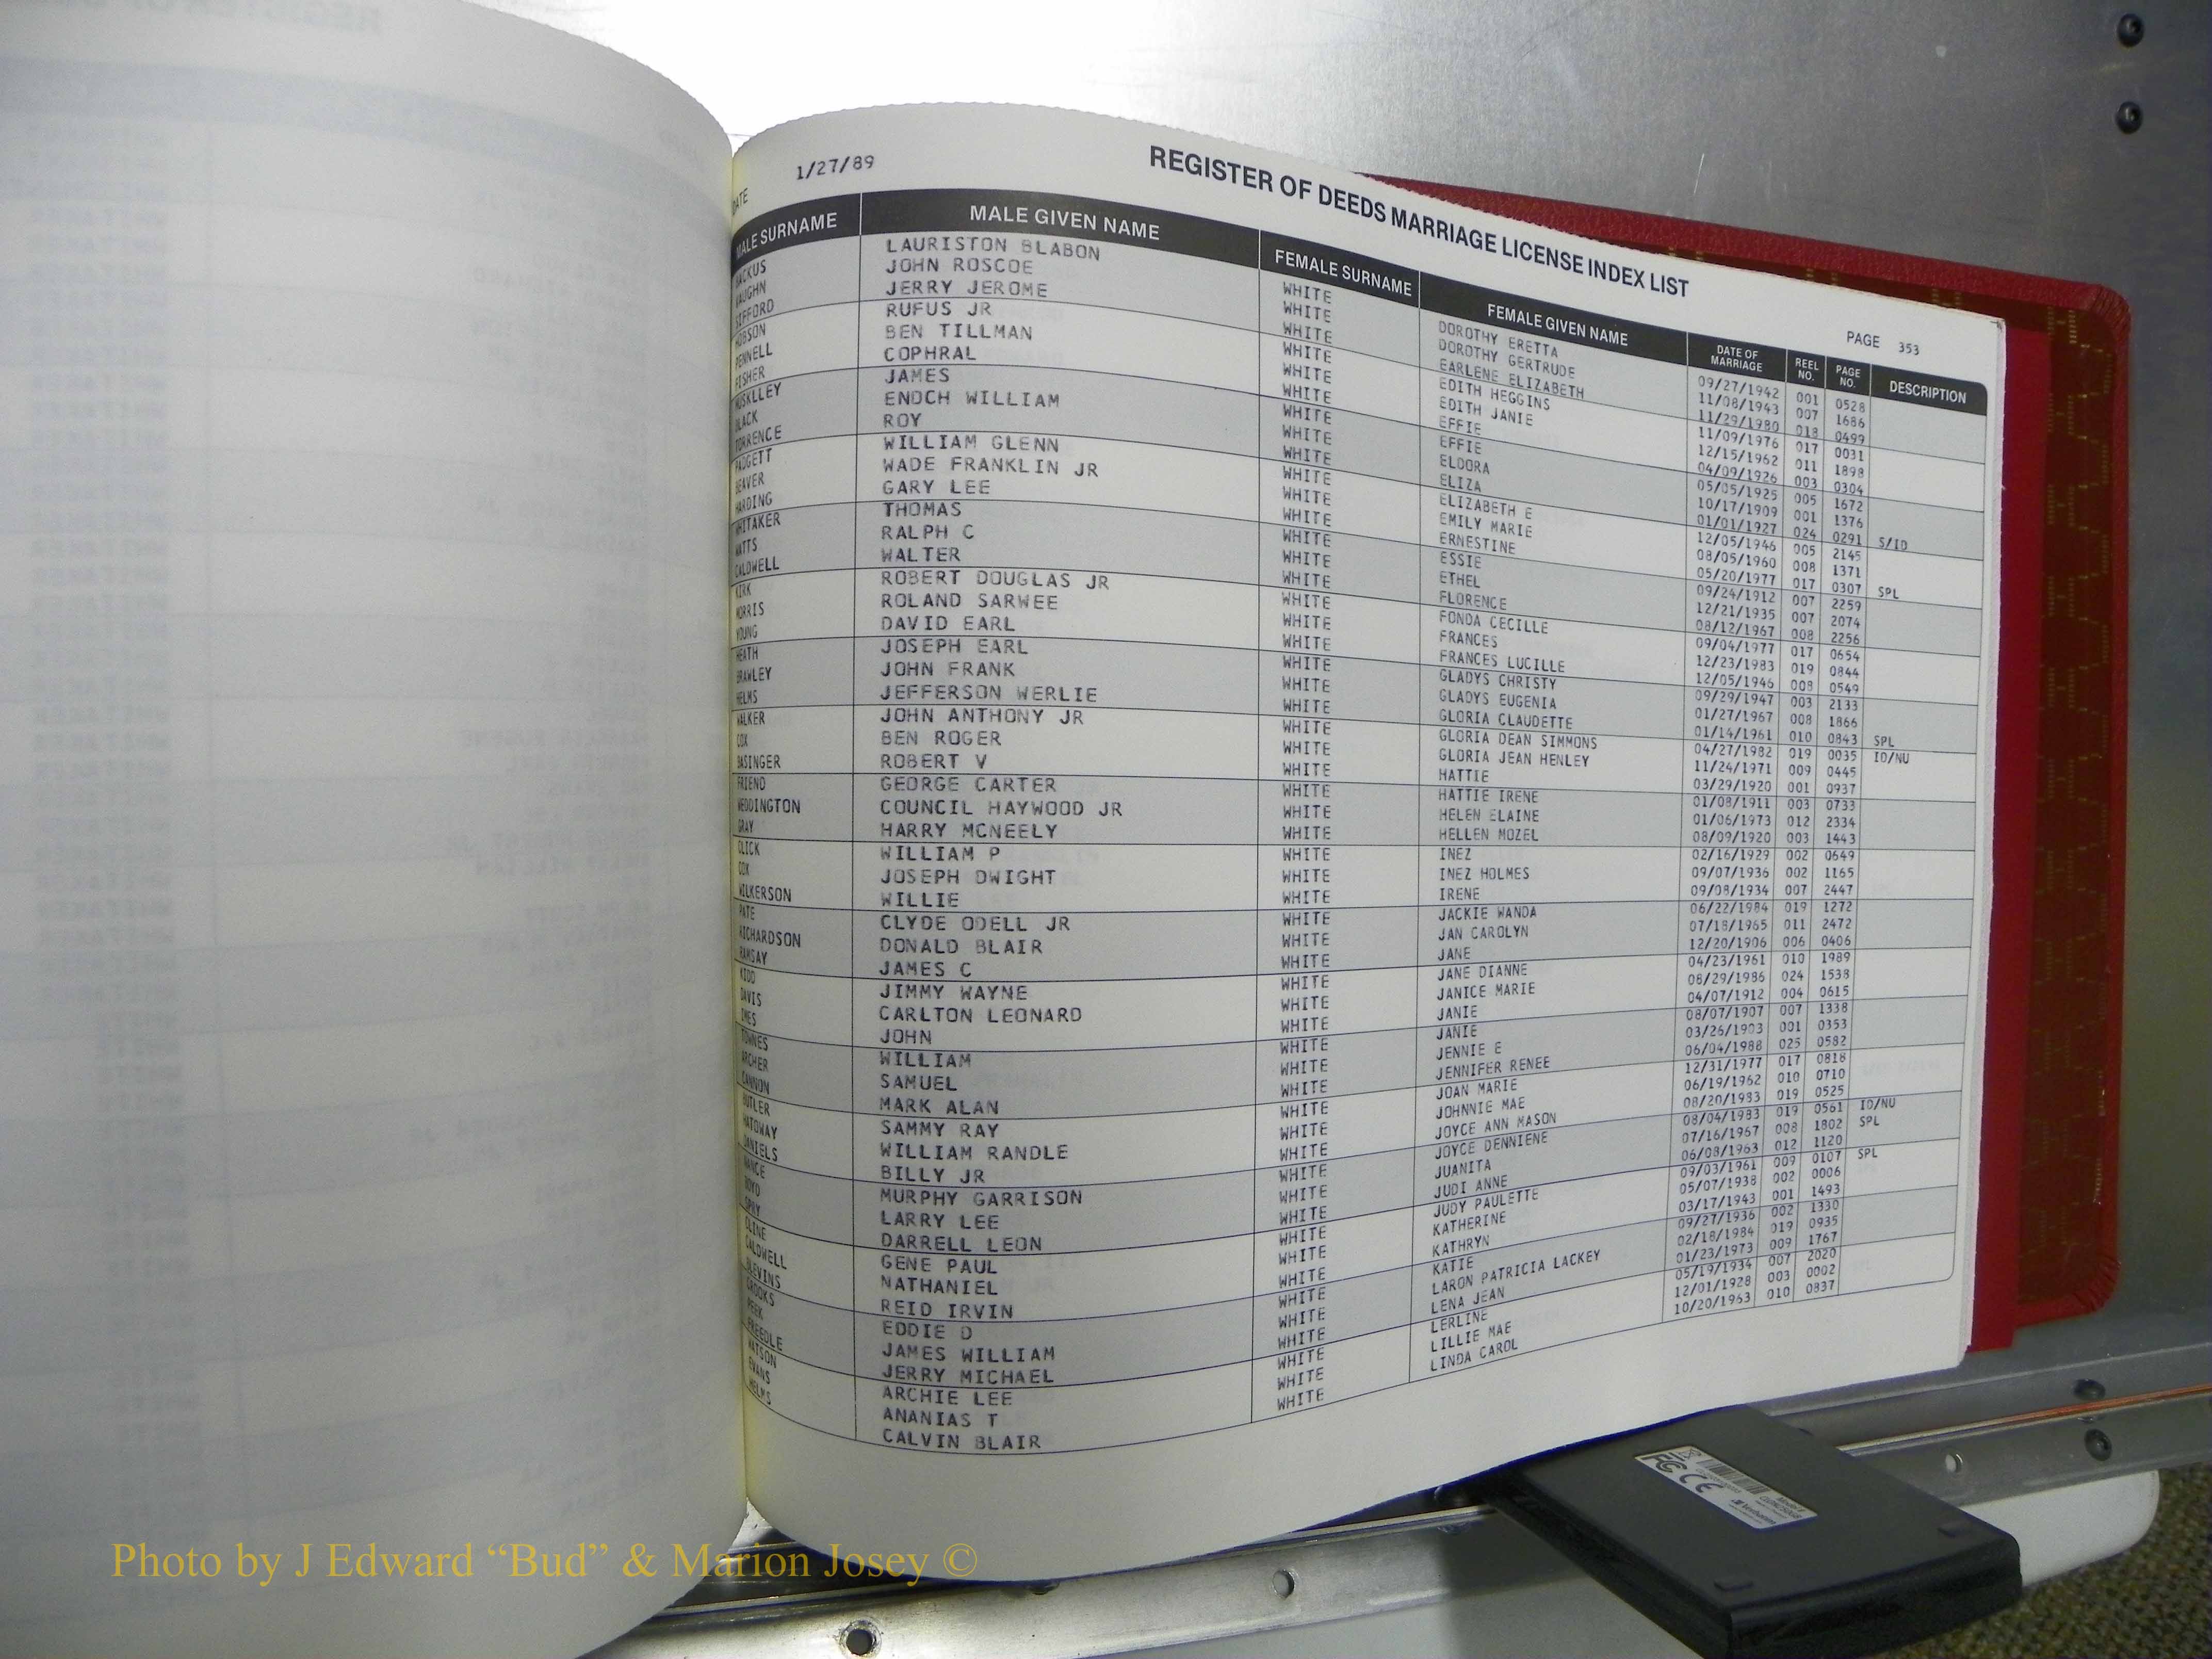 DATE 1/27/89
REGISTER OF DEEDS MARRIAGE LICENSE INDEX LIST
PAGE 353
MALE SURNAME MALE GIVEN NAME FEMALE SURNAME FEMALE GIVEN NAME DATE OF MARRIAGE REEL NO. PAGE NO. DESCRIPTION
LAURISTON BLABON WHITE DOROTHY ERETTA 09/27/1942 001 0528
VAUGHN JOHN ROSCOE WHITE DOROTHY GERTRUDE 11/08/1943 007 1686
GIFFORD JERRY JEROME WHITE EARLENE ELIZABETH 11/29/1980 018 0499
HOBSON RUFUS JR WHITE EDITH HEGGINS 11/09/1976 017 0031
PENNELL BEN TILLMAN WHITE EDITH JANIE 12/15/1962 011 1898
FISHER COPHRAL WHITE EFFIE 04/09/1926 003 0304
MUSKLLEY JAMES WHITE EFFIE 05/05/1925 005 1672
BLACK ENOCH WILLIAM WHITE ELDORA 10/17/1909 001 1376
TORRENCE ROY WHITE ELIZA 01/01/1927 024 0291 S/ID
PADGETT WILLIAM GLENN WHITE ELIZABETH E 12/05/1946 005 2145
BEAVER WADE FRANKLIN JR WHITE EMILY MARIE 08/05/1960 008 1371
HARDING GARY LEE WHITE ERNESTINE 05/20/1977 017 0307 SPL
WHITAKER THOMAS WHITE ESSIE 09/24/1912 007 2259
WATTS RALPH C WHITE ETHEL 12/21/1935 007 2074
CALDWELL WALTER WHITE FLORENCE 08/12/1967 008 2256
KIRK ROBERT DOUGLAS JR WHITE FONDA CECILLE 09/04/1977 017 0654
MORRIS ROLAND SARWEE WHITE FRANCES 12/23/1983 019 0844
YOUNG DAVID EARL WHITE FRANCES LUCILLE 12/05/1946 008 0549
HEATH JOSEPH EARL WHITE GLADYS CHRISTY 09/29/1947 003 2133
BRAWLEY JOHN FRANK WHITE GLADYS EUGENIA 01/27/1967 008 1866
HELMS JEFFERSON WERLIE WHITE GLORIA CLAUDETTE 01/14/1961 010 0843 SPL
WALKER JOHN ANTHONY JR WHITE GLORIA DEAN SIMMONS 04/27/1982 019 0035 ID/NU
COX BEN ROGER WHITE GLORIA JEAN HENLEY 11/24/1971 009 0445
BASINGER ROBERT V WHITE HATTIE 03/29/1920 001 0937
FRIEND GEORGE CARTER WHITE HATTIE IRENE 01/08/1911 003 0733
WEDDINGTON COUNCIL HAYWOOD JR WHITE HELEN ELAINE 01/06/1973 012 2334
GRAY HARRY MCNEELY WHITE HELLEN MOZEL 08/09/1920 003 1443
CLICK WILLIAM P WHITE INEZ 02/16/1929 002 0649
COX JOSEPH DWIGHT WHITE INEZ HOLMES 09/07/1936 002 1165
WILKERSON WILLIE WHITE IRENE 09/08/1934 007 2447
PATE CLYDE ODELL JR WHITE JACKIE WANDA 06/22/1984 019 1272
RICHARDSON DONALD BLAIR WHITE JAN CAROLYN 07/18/1965 011 2472
RAMSAY JAMES C WHITE JANE 12/20/1906 006 0406
KIDD JIMMY WAYNE WHITE JANE DIANNE 04/23/1961 010 1989
DAVIS CARLTON LEONARD WHITE JANICE MARIE 08/29/1986 024 1538
IMES JOHN WHITE JANIE 04/07/1912 004 0615
TOWNES WILLIAM WHITE JANIE 08/07/1907 007 1338
ARCHER SAMUEL WHITE JENNIE E 03/26/1903 001 0353
CANNON MARK ALAN WHITE JENNIFER RENEE 06/04/1988 025 0582
BUTLER SAMMY RAY WHITE JOAN MARIE 12/31/1977 017 0818
HATOWAY WILLIAM RANDLE WHITE JOHNNIE MAE 06/19/1962 010 0710
DANIELS BILLY JR WHITE JOYCE ANN MASON 08/20/1983 019 0525
NANCE MURPHY GARRISON WHITE JOYCE DENNIENE 08/04/1983 019 0561 ID/NU
BOYD LARRY LEE WHITE JUANITA 07/16/1967 008 1802 SPL
SPRY DARRELL LEON WHITE JUDI ANNE 06/08/1963 012 1120
CLINE GENE PAUL WHITE JUDY PAULETTE 09/03/1961 009 0107 SPL
CALDWELL NATHANIEL WHITE KATHERINE 05/07/1938 002 0006
BLEVINS REID IRVIN WHITE KATHRYN 03/17/1943 001 1493
CROOKS EDDIE D WHITE KATIE 09/27/1936 002 1330
PEEK JAMES WILLIAM WHITE LARON PATRICIA LACKEY 02/18/1984 019 0935
FREEDLE JERRY MICHAEL WHITE LENA JEAN 01/23/1973 009 1767
WATSON ARCHIE LEE WHITE LERLINE 05/19/1934 007 2020
EVANS ANANIAS T WHITE LILLIE MAE 12/01/1928 003 0002
HELMS CALVIN BLAIR WHITE LINDA CAROL 10/20/1963 010 0837
Photo by J Edward “Bud” & Marion Josey ©